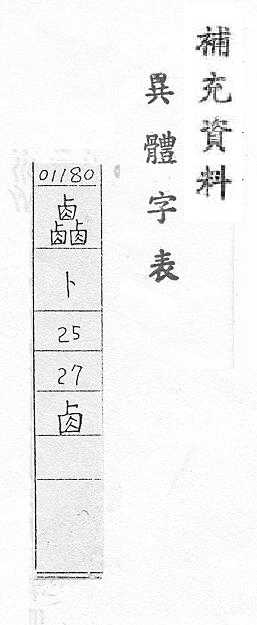 補充資料
異體字表
01180
𠧪
卜
25
27
卤